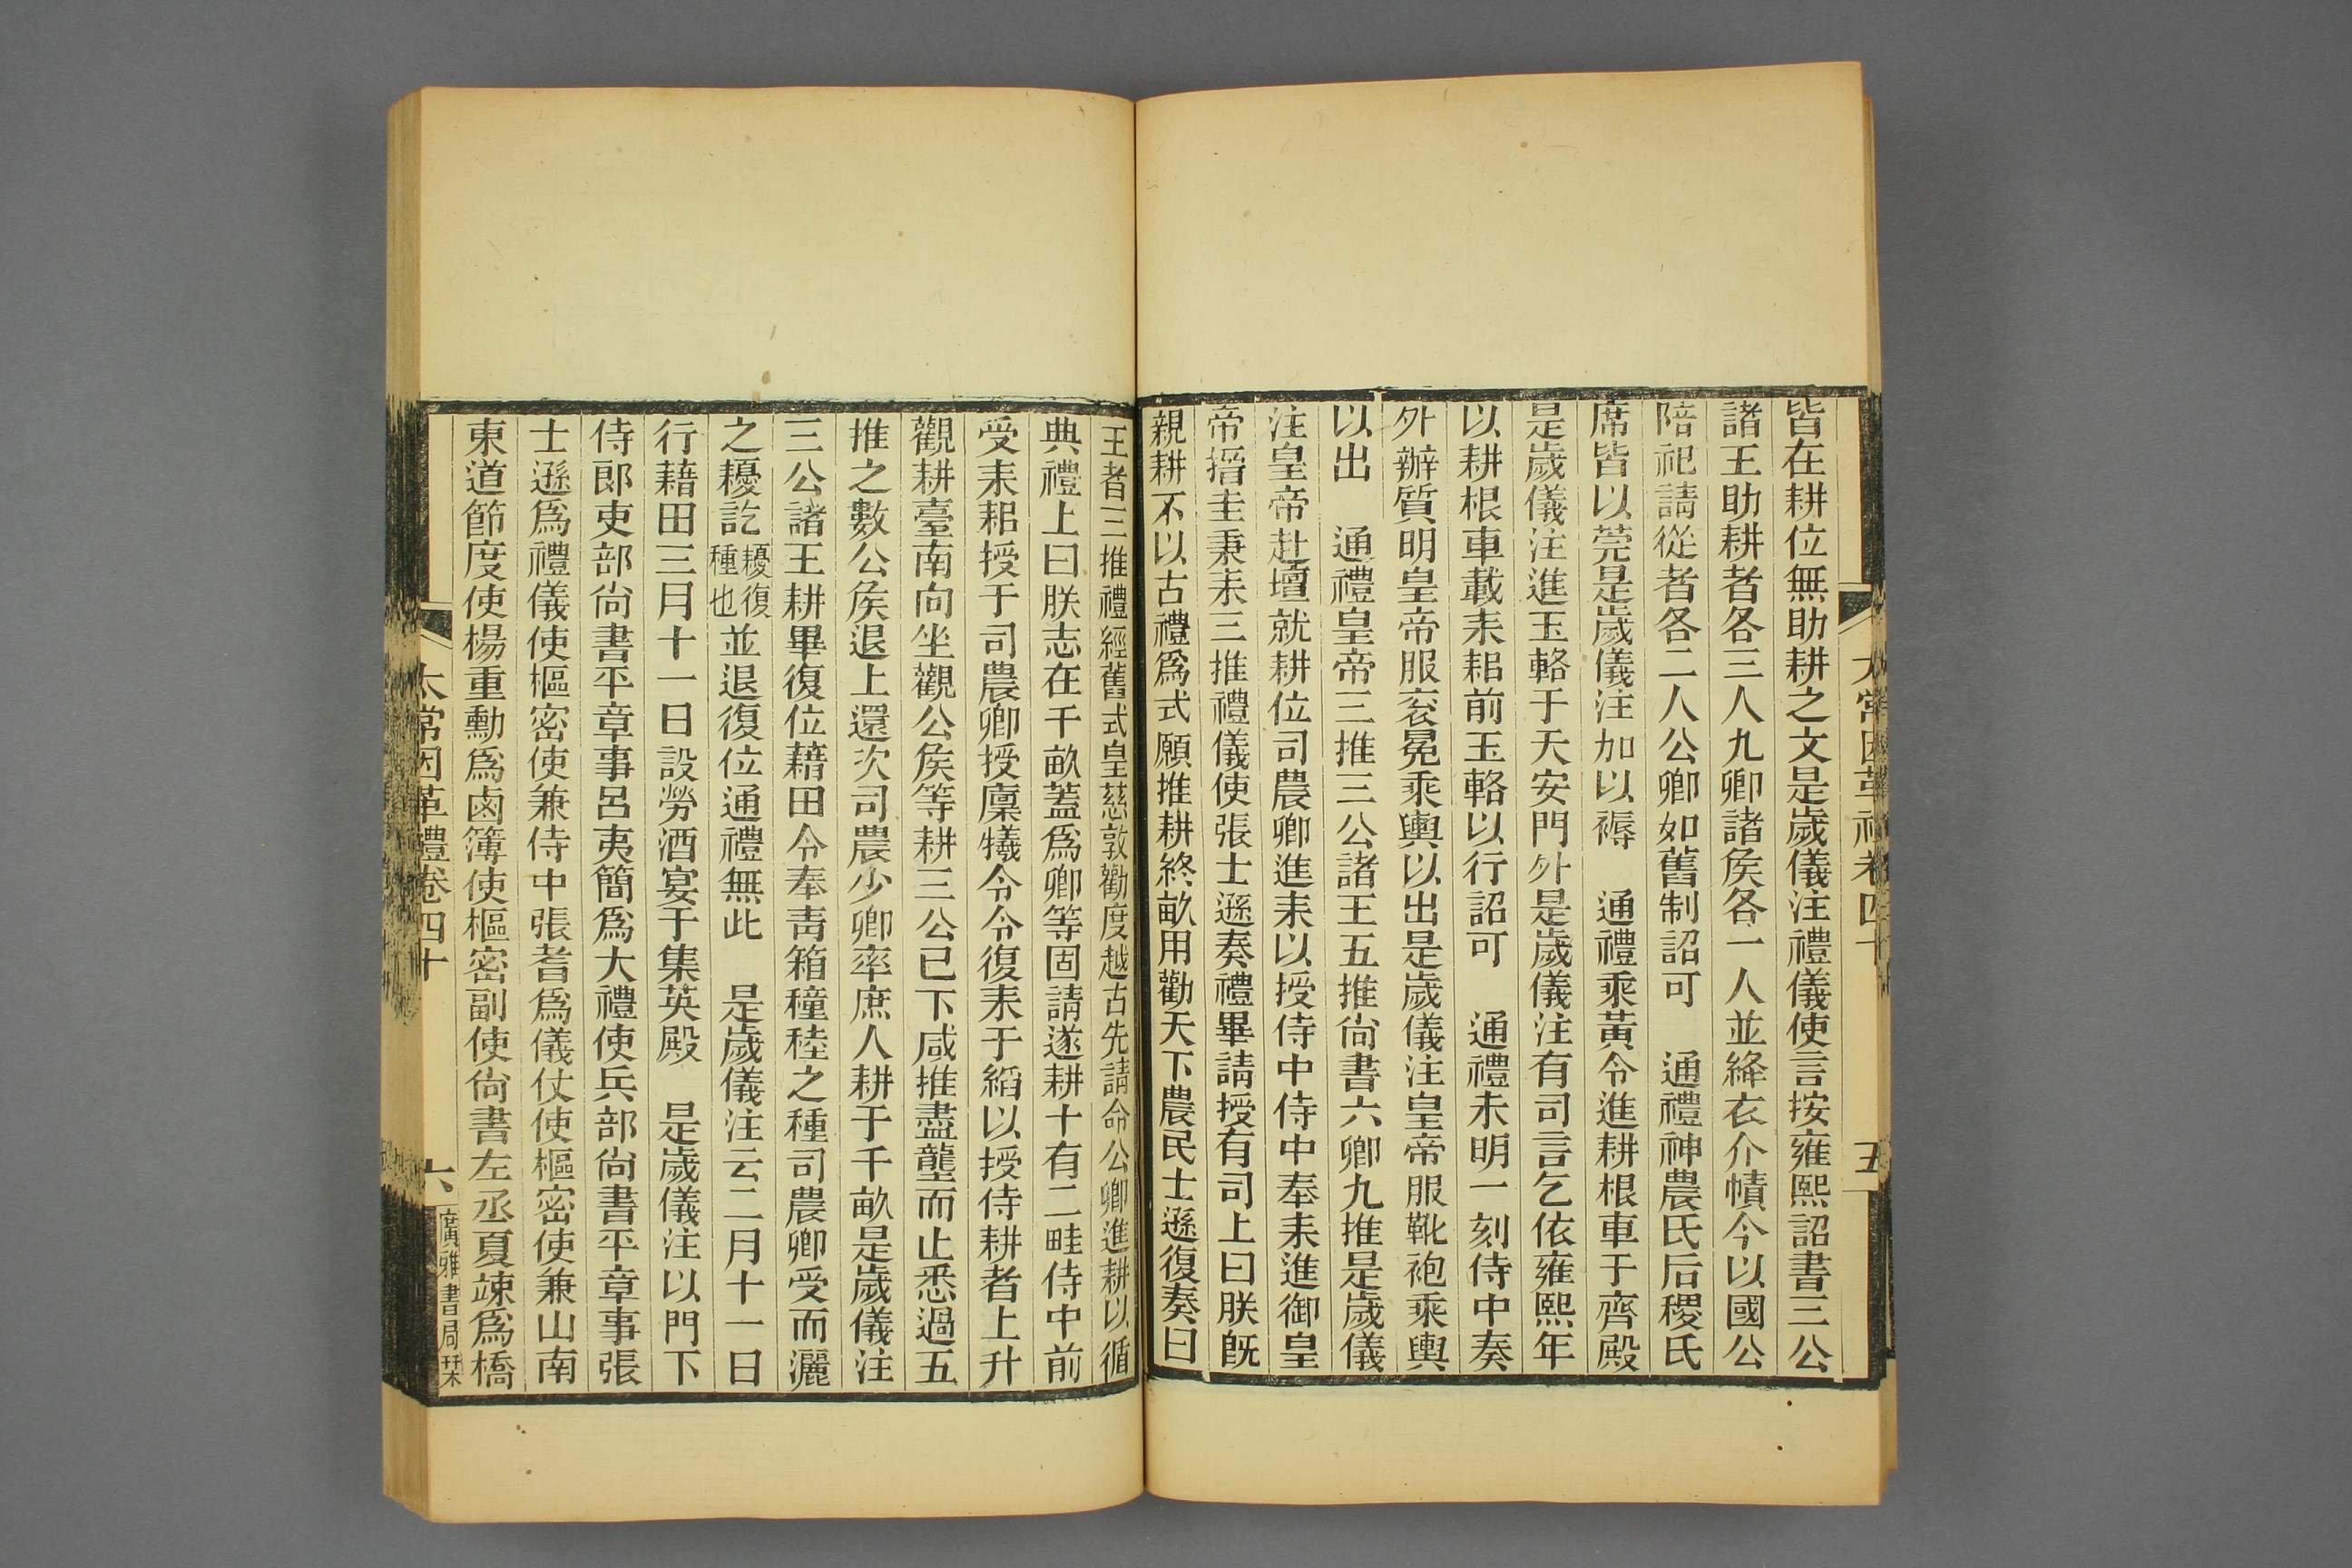 太常因革禮卷四十
五
皆在耕位無助耕之文是歲儀注禮儀使言按雍熙詔書三公
諸王助耕者各三人九卿諸矦各一人並絳衣介幘今以國公
陪祀請從者各二人公卿如舊制詔可　通禮神農氏后稷氏
席皆以莞是歲儀注加以褥　通禮乘黃令進耕根車于齊殿
是歲儀注進玉輅于天安門外是歲儀注有司言乞依雍熙年
以耕根車載耒耜前玉輅以行詔可　通禮未明一刻侍中奏
外辦質明皇帝服衮冕乘輿以出是歲儀注皇帝服靴袍乘輿
以出　通禮皇帝三推三公諸王五推尙書六卿九推是歲儀
注皇帝赴壇就耕位司農卿進耒以授侍中侍中奉耒進御皇
帝搢圭秉耒三推禮儀使張士遜奏禮畢請授有司上曰朕旣
親耕不以古禮爲式願推耕終畝用勸天下農民士遜復奏曰
王者三推禮經舊式皇慈敦勸度越古先請命公卿進耕以循
典禮上曰朕志在千畝蓋爲卿等固請遂耕十有二畦侍中前
受耒耜授于司農卿授廩犧令令復耒于縚以授侍耕者上升
觀耕臺南向坐觀公矦等耕三公已下咸推盡壟而止悉過五
推之數公矦退上還次司農少卿率庶人耕于千畝是歲儀注
三公諸王耕畢復位藉田令奉靑箱穜稑之種司農卿受而灑
之耰訖耰復種也並退復位通禮無此　是歲儀注云二月十一日
行藉田三月十一日設勞酒宴于集英殿　是歲儀注以門下
侍郞吏部尙書平章事呂夷簡爲大禮使兵部尙書平章事張
士遜爲禮儀使樞密使兼侍中張耆爲儀仗使樞密使兼山南
東道節度使楊重勳爲鹵簿使樞密副使尙書左丞夏竦爲橋
太常因革禮卷四十
六
廣雅書局栞